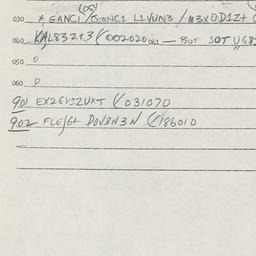 (05)
030 A GANCI / GONC1 L1VUN3 / M3X0D1Z+ (
040 KAL832+3 ( 002020 061 — BUT SOT U68
050 0
060 0
901 EX26V1ZUKT ( 031070
902 FLEJ6+ DOV3N3N ( 186010